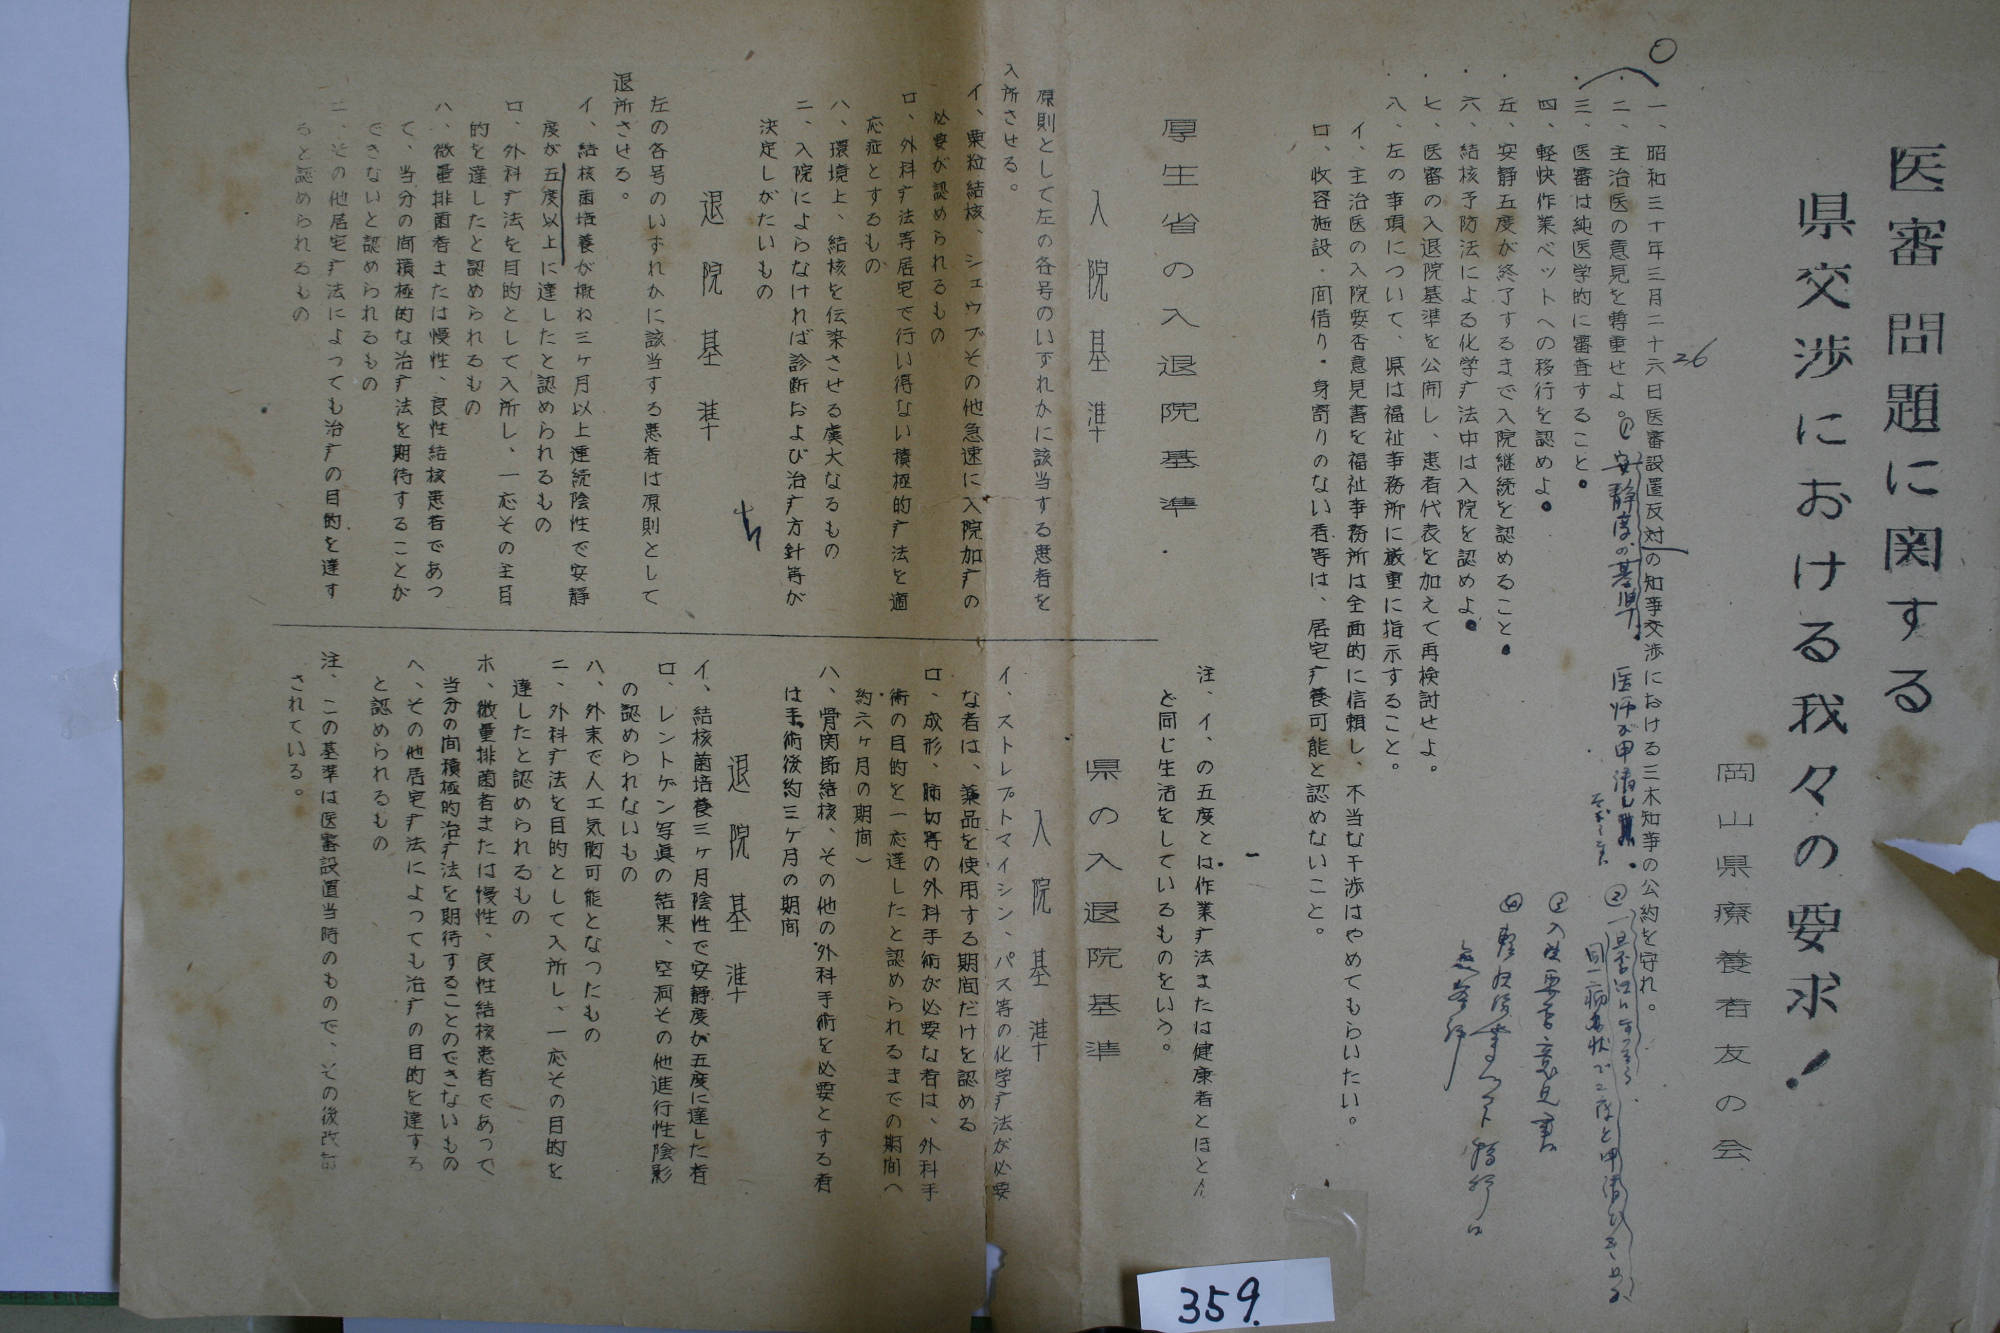 医審問題に関する
県交渉における我々の要求！
岡山県療養者友の会
一、昭和三十年三月二十六日医審設置反対の知事交渉における三木知事の公約を守れ。
26
二、主治医の意見を尊重せよ。
① 安静度の基準。
医師が申請し
②
三、医審は純医学的に審査すること。
四、軽快作業ベットへの移行を認めよ。
③ 入院要否意見書
五、安静五度が終了するまで入院継続を認めること。
④
六、結核予防法による化学疒法中は入院を認めよ。
七、医審の入退院基準を公開し、患者代表を加えて再検討せよ。
八、左の事項について、県は福祉事務所に厳重に指示すること。
イ、主治医の入院要否意見書を福祉事務所は全面的に信頼し、不当な干渉はやめてもらいたい。
ロ、收容施設・间借り・身寄りのない者等は、居宅疒養可能と認めないこと。
厚生省の入退院基準
入院基準
原則として左の各号のいずれかに該当する患者を
入所させる。
イ、粟粒結核、シュウブその他急速に入院加疒の
必要が認められるもの
ロ、外科疒法等居宅で行い得ない積極的疒法を適
応症とするもの
ハ、環境上、結核を伝染させる虞大なるもの
ニ、入院によらなければ診断および治疒方針等が
決定しがたいもの
退院基準
左の各号のいずれかに該当する患者は原則として
退所させる。
イ、結核菌培養が概ね三ヶ月以上連続陰性で安静
度が五度以上に達したと認められるもの
ロ、外科疒法を目的として入所し、一応その主目
的を達したと認められるもの
ハ、微量排菌者または慢性、良性結核患者であっ
て、当分の间積極的な治疒法を期待することが
できないと認められるもの
ニ、その他居宅疒法によっても治疒の目的を達す
ると認められるもの
注、イ、の五度とは作業疒法または健康者とほとん
と同じ生活をしているものをいう。
県の入退院基準
入院基準
イ、ストレプトマイシン、パス等の化学疒法が必要
な者は、薬品を使用する期间だけを認める
ロ、成形、肺切等の外科手術が必要な者は、外科手
術の目的を一応達したと認められるまでの期间（
約六ヶ月の期间）
ハ、骨関節結核、その他の外科手術を必要とする者
は手術後約三ヶ月の期间
退院基準
イ、結核菌培養三ヶ月陰性で安静度が五度に達した者
ロ、レントゲン写眞の結果、空洞その他進行性陰影
の認められないもの
ハ、外来で人工気胸可能となったもの
ニ、外科疒法を目的として入所し、一応その目的を
達したと認められるもの
ホ、微量排菌者または慢性、良性結核患者であって
当分の间積極的治疒法を期待することのできないもの
ヘ、その他居宅疒法によっても治疒の目的を達する
と認められるもの
注、この基準は医審設置当時のもので、その後改訂
されている。
359.